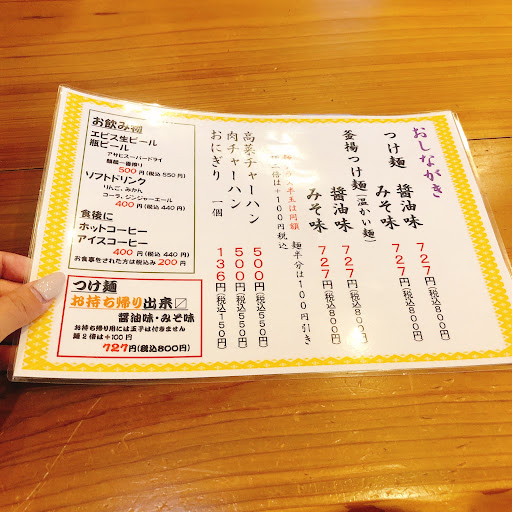 おしながき
つけ麺 醤油味 727円(税込800円)
みそ味 727円(税込800円)
釜揚つけ麺(温かい麺)
醤油味 727円(税込800円)
みそ味 727円(税込800円)
は+100円税込 麺半分は100円引き
高菜チャーハン 500円(税込550円)
肉チャーハン 500円(税込550円)
おにぎり 一個 136円(税込150円)
お飲み物
エビス生ビール
瓶ビール
アサヒスーパードライ
麒麟一番搾り
500円(税込550円)
ソフトドリンク
りんご、みかん
コーラ、ジンジャーエール
400円(税込440円)
食後に
ホットコーヒー
アイスコーヒー
400円(税込440円)
お食事をされた方は税込み200円
つけ麺
お持ち帰り出来〼
醤油味・みそ味
お持ち帰り用には玉子は付きません
麺2倍は+100円
727円(税込800円)